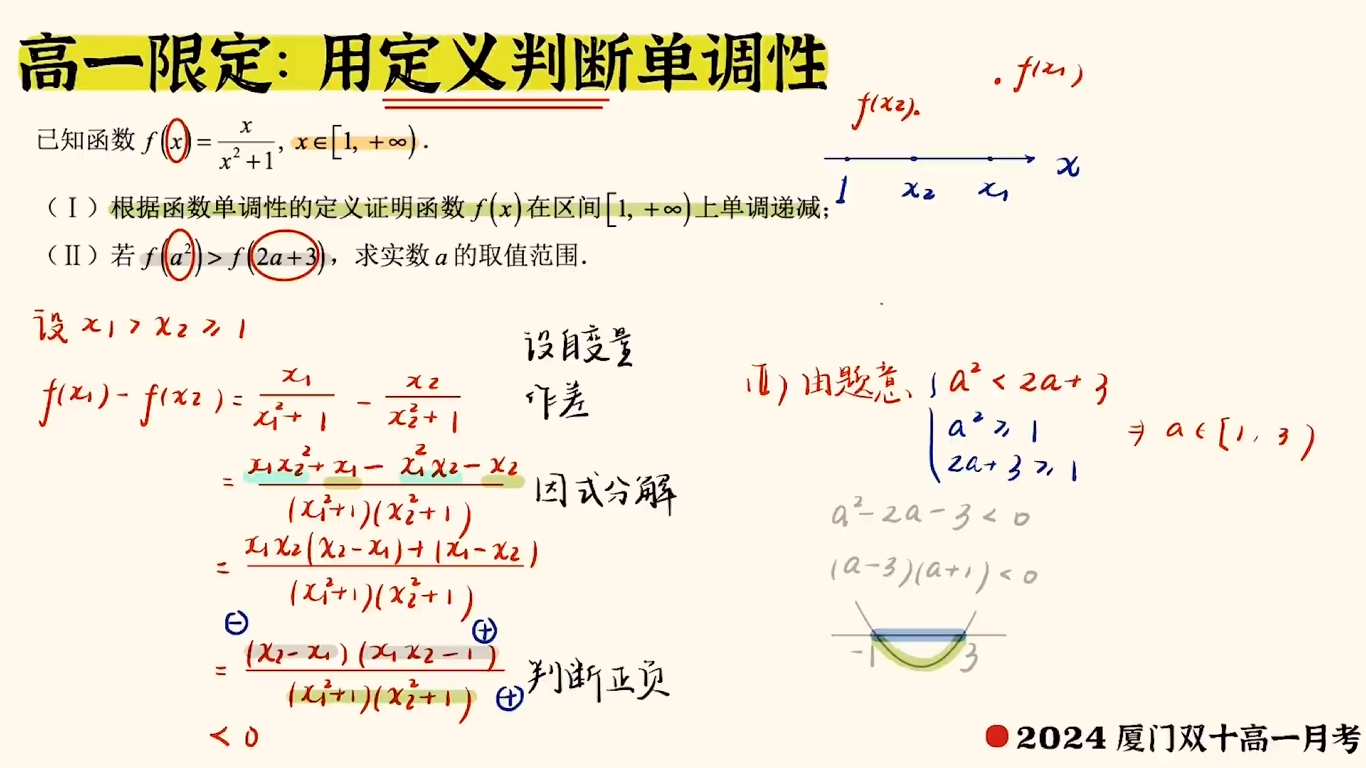 高一限定：用定义判断单调性
已知函数 f(x)=x/(x²+1), x∈[1, +∞).
（Ⅰ）根据函数单调性的定义证明函数 f(x) 在区间[1, +∞)上单调递减；
（Ⅱ）若 f(a²)>f(2a+3)，求实数 a 的取值范围.
f(x₁)
f(x₂)
1 x₂ x₁ x
设 x₁>x₂≥1
设自变量
f(x₁)-f(x₂)=x₁/(x₁²+1) - x₂/(x₂²+1)
作差
=(x₁x₂²+x₁-x₁²x₂-x₂)/((x₁²+1)(x₂²+1))
因式分解
=(x₁x₂(x₂-x₁)+(x₁-x₂))/((x₁²+1)(x₂²+1))
⊖ ⊕
=(x₂-x₁)(x₁x₂-1)/((x₁²+1)(x₂²+1)) ⊕
判断正负
<0
Ⅱ) 由题意、{a²<2a+3
a²≥1
2a+3≥1
⇒ a∈[1, 3)
a²-2a-3<0
(a-3)(a+1)<0
-1 3
2024 厦门双十高一月考